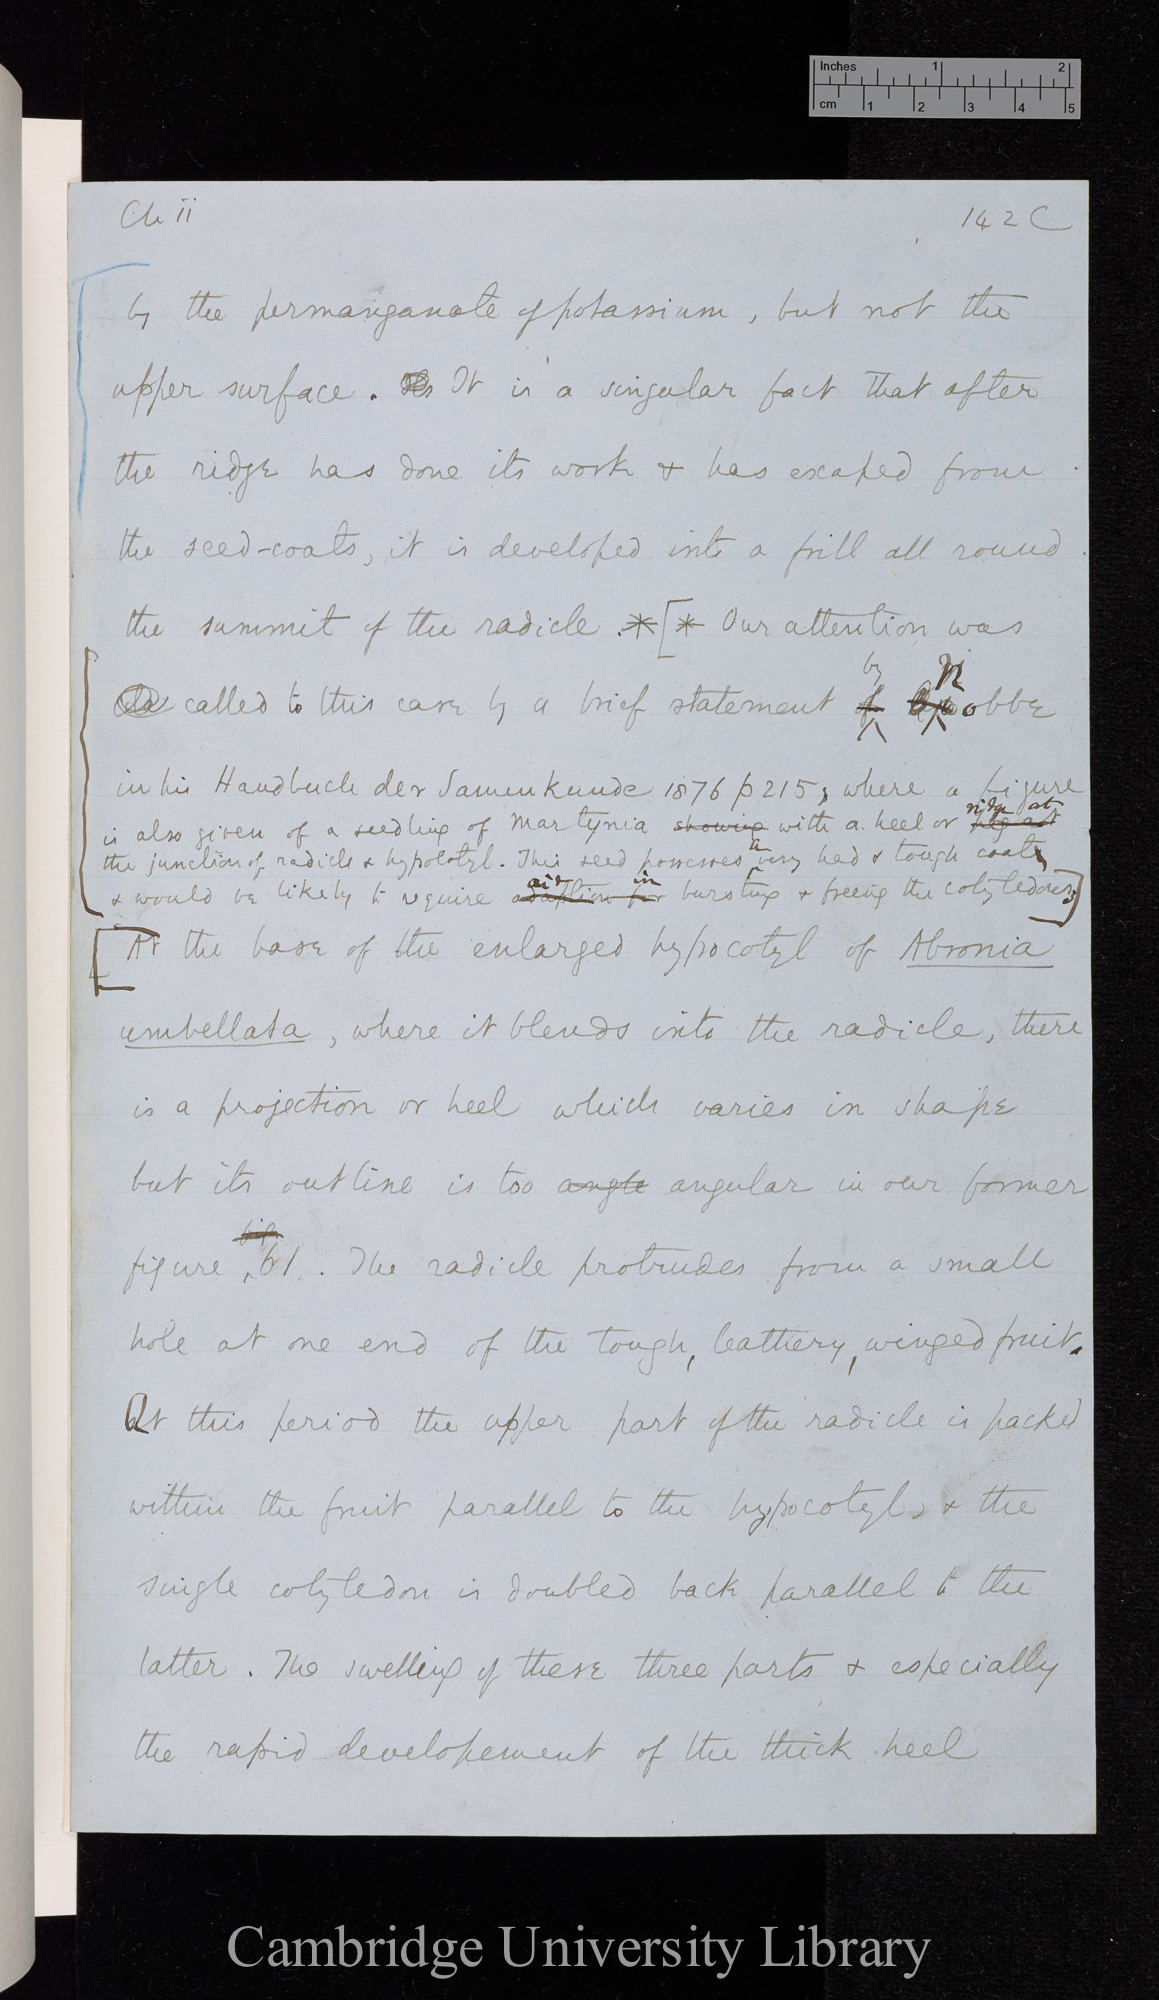 Inches 1 2
cm 1 2 3 4 5
Ch ii 142 C
by the permanganate of potassium, but not the
upper surface. It is a singular fact that after
the ridge has done its work & has escaped from
the seed-coats, it is developed into a frill all round
the summit of the radicle .*[* Our attention was
called to this case by a brief statement by Nobbe
in his Handbuch der Samenkunde 1876 p 215, where a figure
is also given of a seedling of Martynia showing with a heel or ridge at
the junction of radicle & hypocotyl. This seed possesses very had & tough coats
& would be likely to require aid in bursting & freeing the cotyledons]
[At the base of the enlarged hypocotyl of Abronia
umbellata, where it blends into the radicle, there
is a projection or heel which varies in shape
but its outline is too angle angular in our former
figure fig. 61. The radicle protrudes from a small
hole at one end of the tough, leathery, winged fruit.
At this period the upper part of the radicle is packed
within the fruit parallel to the hypocotyl, & the
single cotyledon is doubled back parallel to the
latter. The swelling of these three parts & especially
the rapid developement of the thick heel
Cambridge University Library